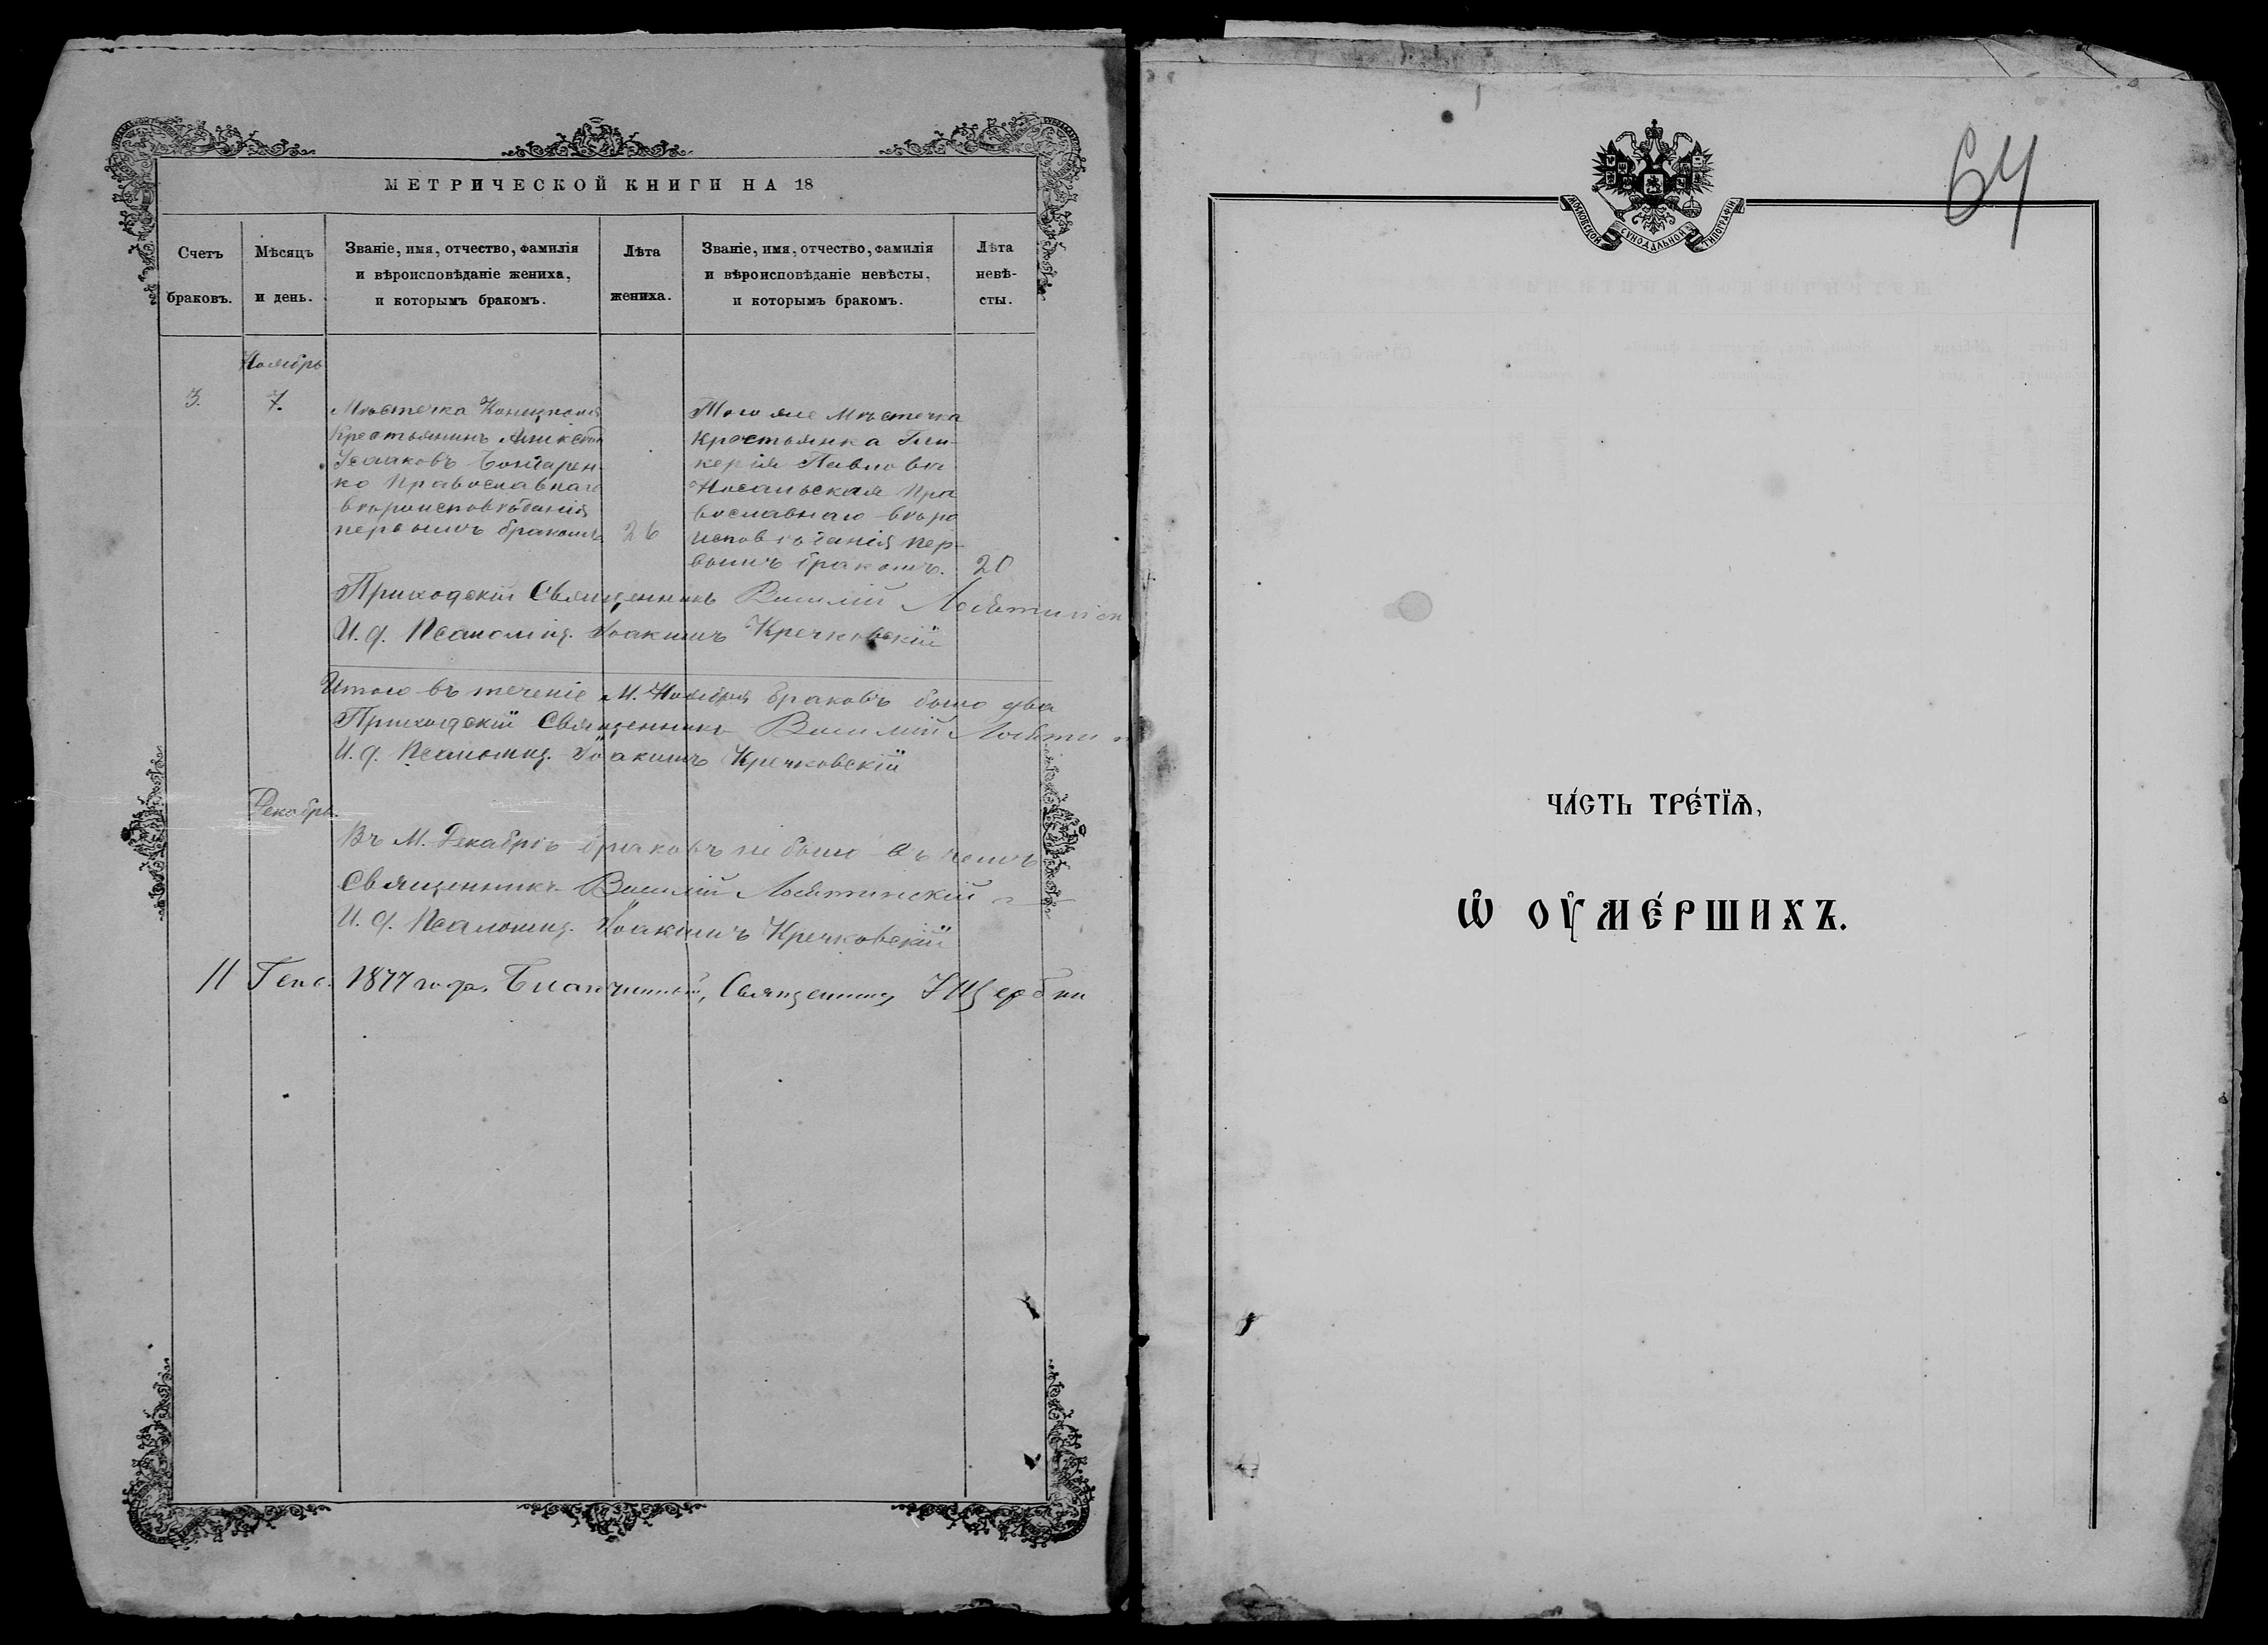 МЕТРИЧЕСКОЙ КНИГИ НА 18
Счетъ браковъ.
Мѣсяцъ и день.
Званіе, имя, отчество, фамилія
и вѣроисповѣданіе жениха,
и которымъ бракомъ.
Лѣта жениха.
Званіе, имя, отчество, фамилія
и вѣроисповѣданіе невѣсты,
и которымъ бракомъ.
Лѣта
невѣ-
сты.
Ноябрь
3.
7.
Мѣстечка Концеполя
Крестьянинъ
Исааковъ Бондарен-
ко Православнаго
вѣроисповѣданія
первымъ бракомъ
26
Того же Мѣстечка
крестьянка Гли-
керія Павлова
Носальская Пра
вославнаго вѣро
исповѣданія пер-
вымъ бракомъ.
20
Приходскій Священникъ Василій
И. д. Псаломщ. Іоакимъ Кречковскій
Итого въ теченіе М. Ноября браковъ было два
Приходскій Священникъ Василій
И. д. Псаломщ. Іоакимъ Кречковскій
Декабрь.
Въ М. Декабрѣ браковъ не было въ чемъ
Священникъ Василій Лобатинскій
И. д. Псаломщ. Іоакимъ Кречковскій
11 Генв. 1877 года. Благочинный, Священникъ І Щербин
64
МОСКОВСКОЙ СѴНОДАЛЬНОЙ ТИПОГРАФІИ
ЧА́СТЬ ТРЕ́ТЇѦ,
Ѡ҆ ОУ҆МЕ́РШИХЪ.